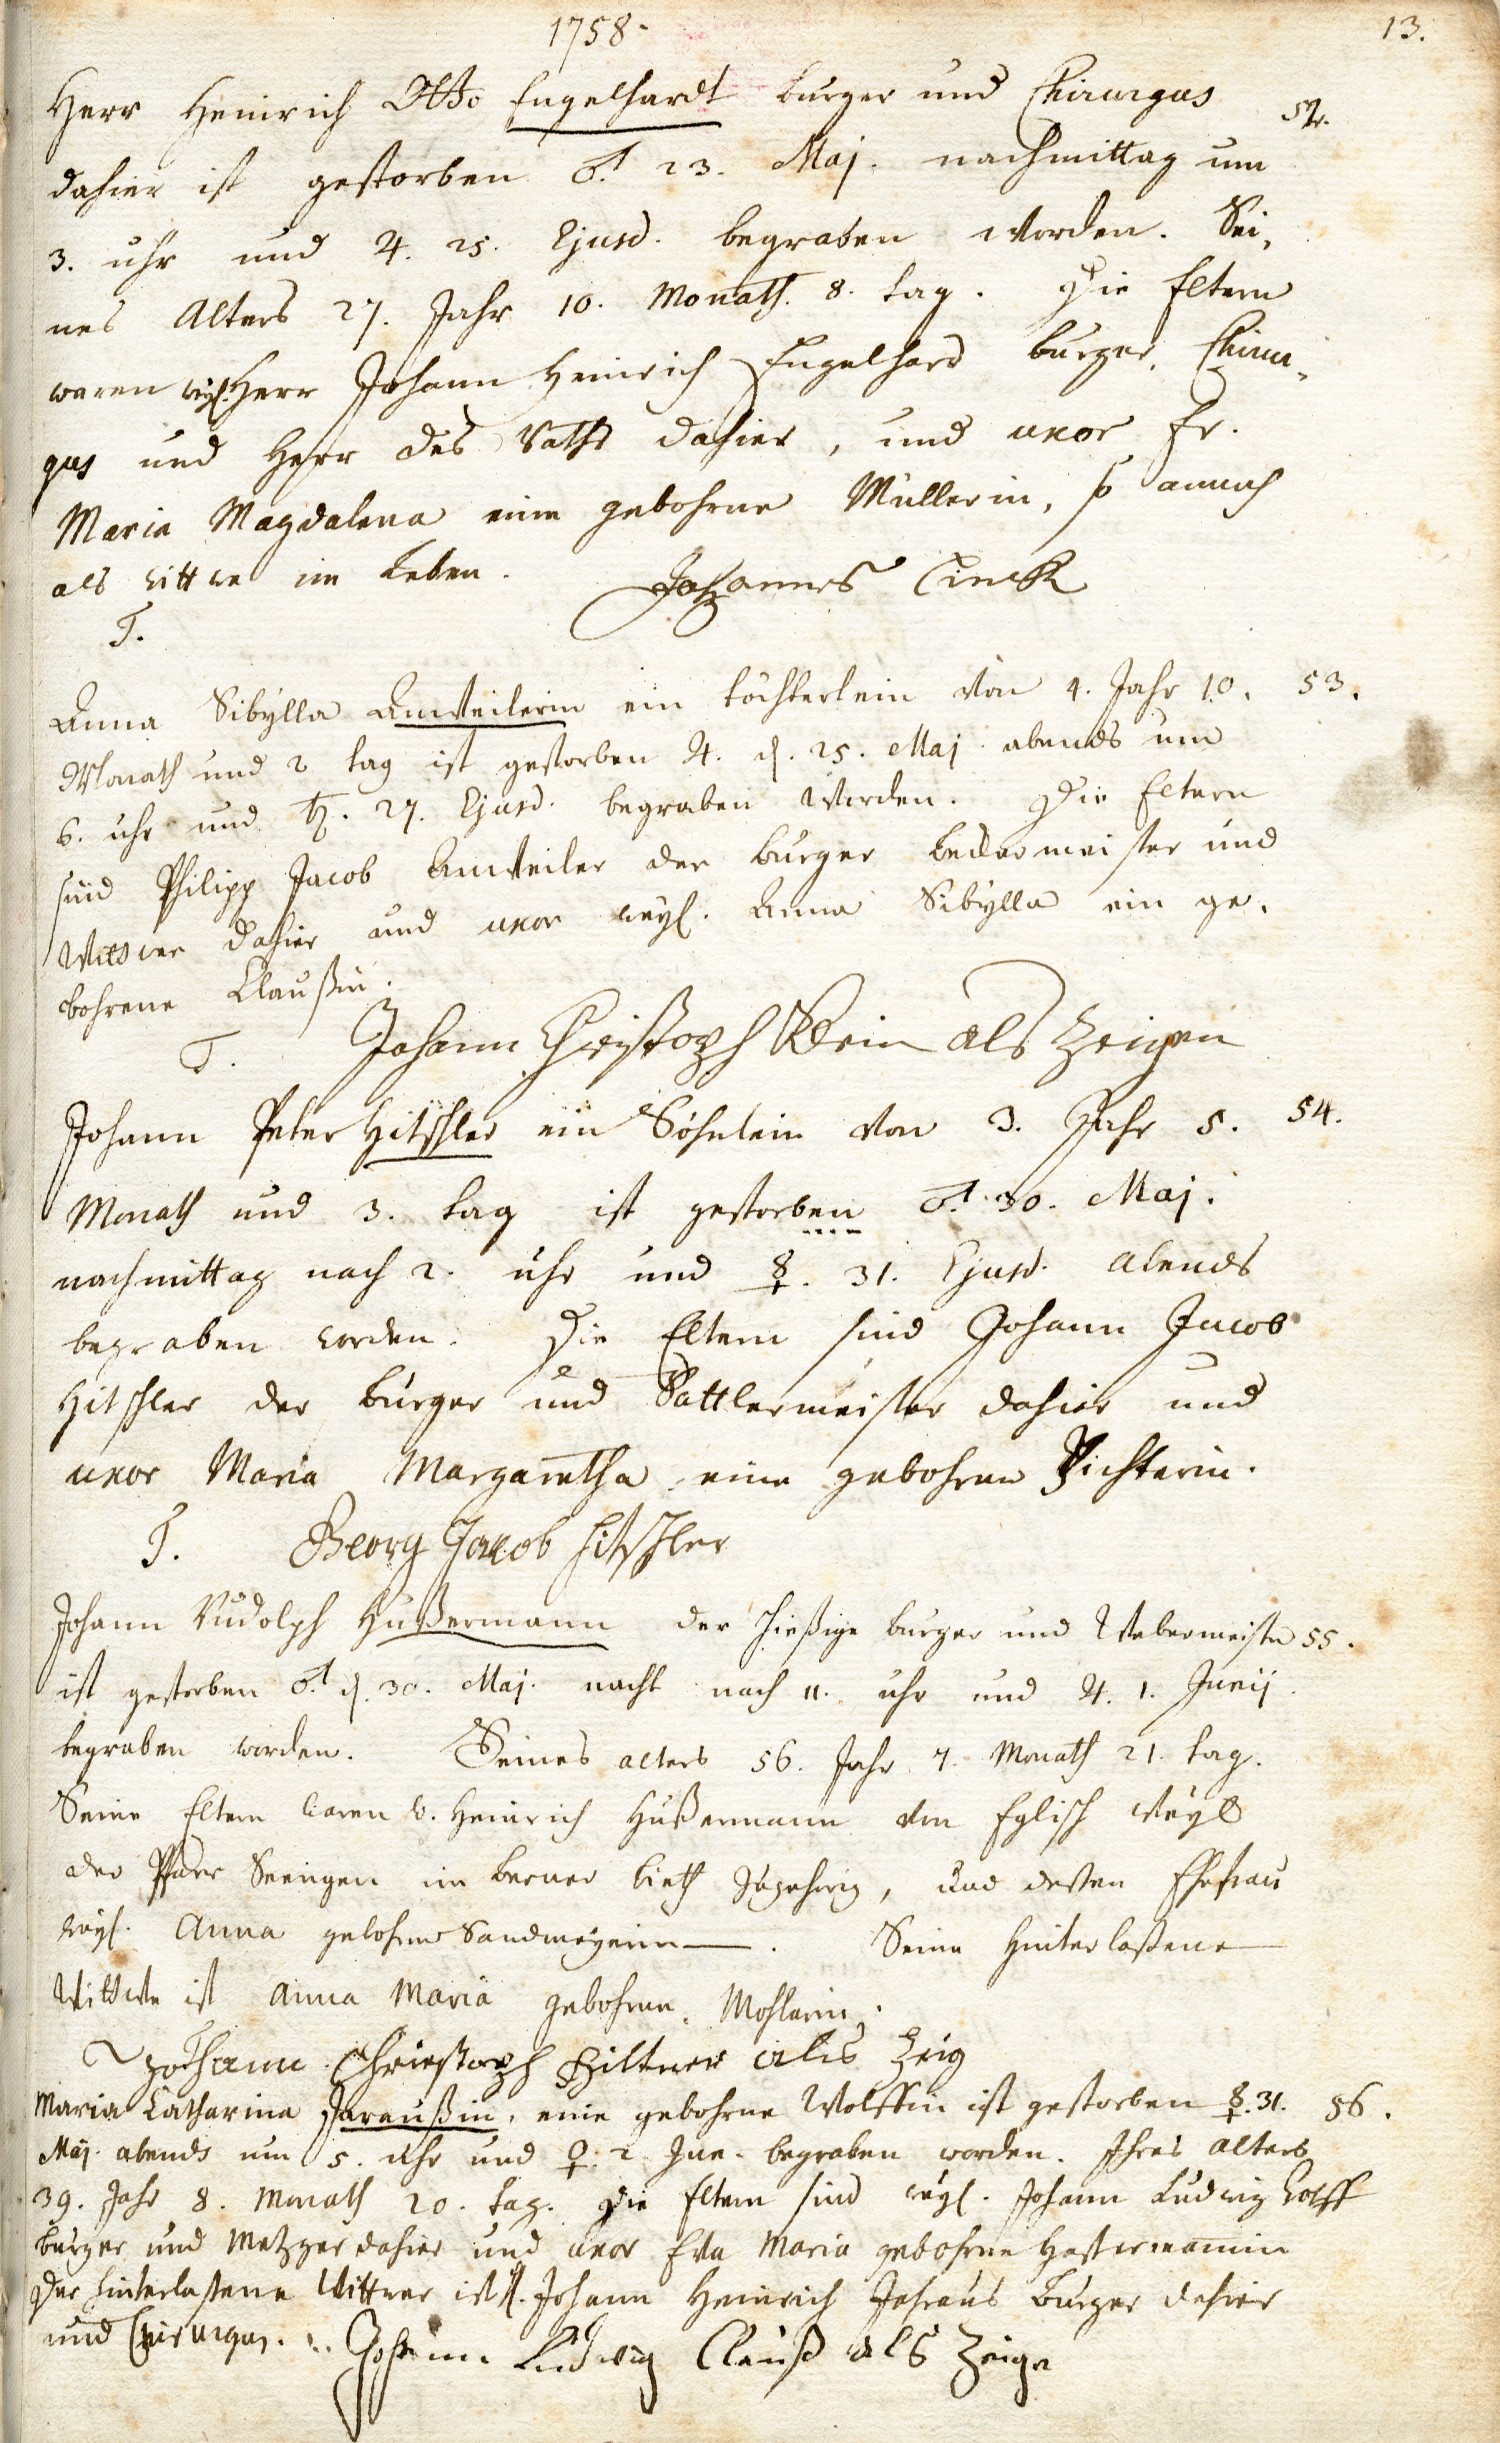 1758.
13.
Herr Heinrich Otto Engelhardt burger und Chirurgus 52.
dahier ist gestorben ♂ 23. Maj. nachmittag um
3. uhr und ♃. 25. Ejusd. begraben worden. Sei,
nes Alters 27. Jahr 10. Monath. 8. tag. Die Eltern
waren weyl. Herr Johann Heinrich Engelhard burger, Chirur,
gus und Herr des Raths dahier, und uxor Fr.
Maria Magdalena eine gebohrne Müllerin, so annoch
als wittwe im Leben. Johannes Linck
T.
Anna Sibylla Anweilerin ein töchterlein von 4. Jahr 10. 53.
Monath und 2 tag ist gestorben ♃. d. 25. Maj. abends um
6. uhr und ♄. 27. Ejusd. begraben worden. Die Eltern
sind Philipp Jacob Anweiler der burger beckermeister und
Wittwer dahier und uxor weyl. Anna Sibylla ein ge,
bohrene Claußin.
T. Johann Christoph Wein als Zeigen
Johann Peter Hitschler ein Söhnlein von 3. Jahr 5. 54.
Monath und 3. tag ist gestorben ♂. 30. Maj.
nachmittag nach 2. uhr und ☿. 31. Ejusd. abends
begraben worden. Die Eltern sind Johann Jacob
Hitschler der burger und Sattlermeister dahier und
uxor Maria Margaretha eine gebohrne Richterin.
T. Georg Jacob Hitschler
Johann Rudolph Hußermann der hießige burger und Webermeister 55.
ist gestorben ♂. d. 30. Maj. nacht nach 11. uhr und ♃. 1. Junij.
begraben worden. Seines alters 56. Jahr 7. Monath 21. tag.
Seine Eltern waren w. Heinrich Hußermann von Eglisch weyl
der Pfarr Seengen im berner bieth zugehörig, und dessen Ehefrau
weyl. Anna gebohrne Sandmeyerin. Seine Hinterlaßene
Wittwe ist Anna Maria gebohrne Mohlerin.
Johann Christoph Hiltner als Zeig
Maria Catharina Jaraußin, eine gebohrne Wolffin ist gestorben ☿. 31. 56.
Maj. abends um 5. uhr und ♀. 2 Jun. begraben worden. Ihres alters
39. Jahr 8. Monath 20. tag. Die Eltern sind weyl. Johann Ludwig Wolff
burger und Metzger dahier und uxor Eva Maria gebohrne Hostermännin
Der hinterlaßene Wittwer ist H. Johann Heinrich Jahraus burger dahier
und Chirurgus. Johann Ludwig Clauß als Zeige